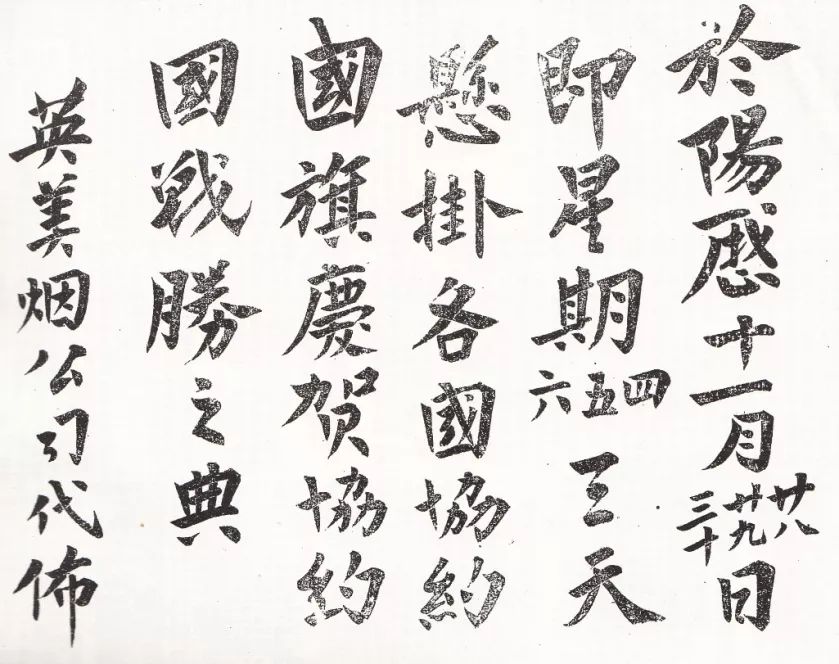 於陽厯十一月廿八廿九三十日
即星期四五六三天
懸掛各國協約
國旗慶贺協約
國戰勝之典
英美烟公司代佈